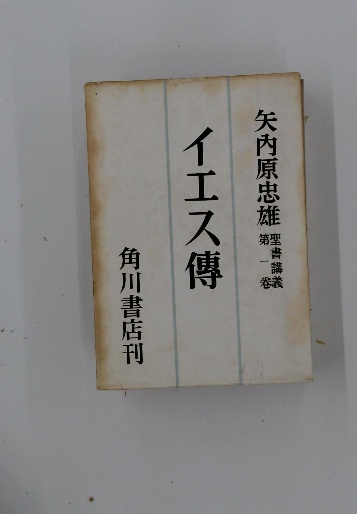 矢内原忠雄 聖書講義 第一卷
イエス傳
角川書店刊